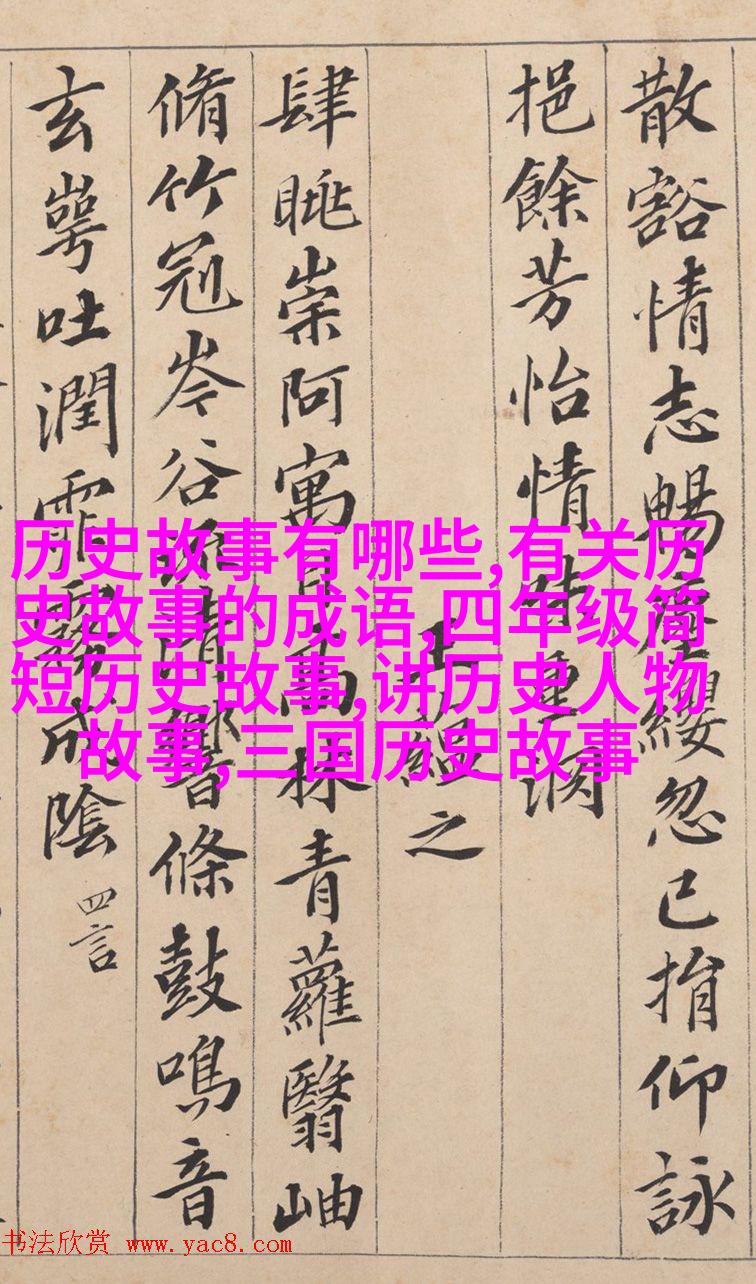 散豁情志暢塵纓忽已捐仰詠
挹餘芳怡情味重淵
王蘊之
肆眺崇阿寓目高林青蘿翳岫
脩竹冠岑谷流清響條鼓鳴音
玄崿吐潤霏霧成陰 四言
历史故事有哪些,有关历
史故事的成语,四年级简
短历史故事,讲历史人物
故事,三国历史故事
书法欣赏 www.yac8.com